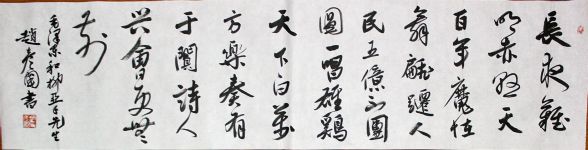 長夜難
明赤縣天
百年魔怪
舞翩躚人
民五億不團
圓一唱雄鷄
天下白萬
方樂奏有
于闐詩人
興會更無
前
毛澤東和柳亚子先生
趙彥國書